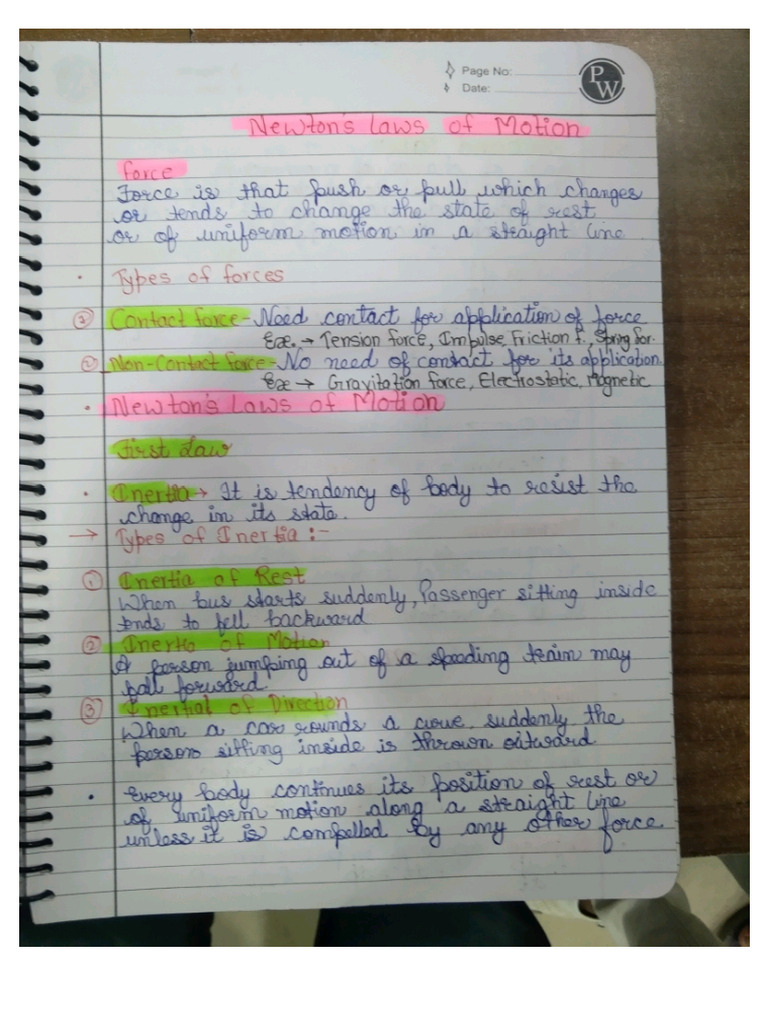 Page No:
Date:
PW
Newton's Laws of Motion
force
Force is that push or pull which changes
or tends to change the state of rest
or of uniform motion in a straight line
• Types of forces
① Contact force - Need contact for application of force
Ex. → Tension force, Impulse, Friction f., Spring for.
② Non-Contact force - No need of contact for its application.
Ex → Gravitation force, Electrostatic, Magnetic
• Newton's Laws of Motion
First Law
• Inertia → It is tendency of body to resist the
change in its state.
→ Types of Inertia :-
① Inertia of Rest
When bus starts suddenly, Passenger sitting inside
tends to fell backward
② Inertia of Motion
A person jumping out of a speeding train may
fall forward.
③ Inertial of Direction
When a car rounds a curve suddenly the
person sitting inside is thrown outward
• Every body continues its position of rest or
of uniform motion along a straight line
unless it is compelled by any other force.